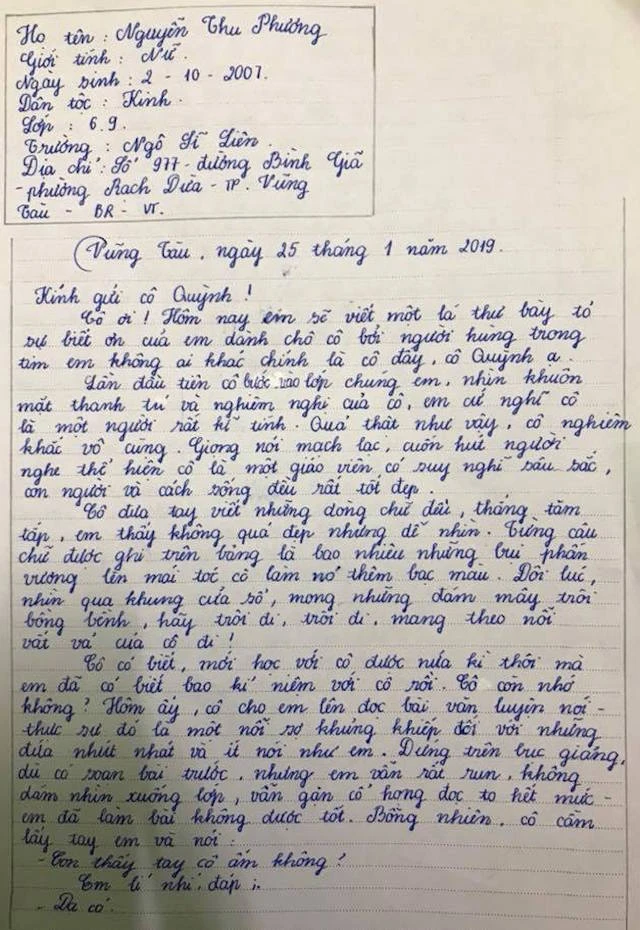 Họ tên : Nguyễn Thu Phương
Giới tính : Nữ.
Ngày sinh : 2 - 10 - 2007.
Dân tộc : Kinh.
Lớp : 6.9.
Trường : Ngô Sĩ Liên.
Địa chỉ : Số 977 - đường Bình Giã
- phường Rạch Dừa - TP. Vũng
Tàu - BR - VT.
Vũng Tàu, ngày 25 tháng 1 năm 2019.
Kính gửi cô Quỳnh !
Cô ơi ! Hôm nay em sẽ viết một lá thư bày tỏ
sự biết ơn của em dành cho cô bởi người hùng trong
tim em không ai khác chính là cô đấy, cô Quỳnh ạ.
Lần đầu tiên cô bước vào lớp chúng em, nhìn khuôn
mặt thanh tú và nghiêm nghị của cô, em cứ nghĩ cô
là một người rất kĩ tính. Quả thật như vậy, cô nghiêm
khắc vô cùng. Giọng nói mạch lạc, cuốn hút người
nghe thể hiện cô là một giáo viên có suy nghĩ sâu sắc,
con người và cách sống đều rất tốt đẹp.
Cô đưa tay viết những dòng chữ đều, thẳng tăm
tắp, em thấy không quá đẹp nhưng dễ nhìn. Từng câu
chữ được ghi trên bảng là bao nhiêu những bụi phấn
vương lên mái tóc cô làm nó thêm bạc màu. Đôi lúc,
nhìn qua khung cửa sổ, mong những đám mây trôi
bồng bềnh, hãy trôi đi, trôi đi, mang theo nỗi
vất vả của cô đi !
Cô có biết, mới học với cô được nửa kì thôi mà
em đã có biết bao kỉ niệm với cô rồi. Cô còn nhớ
không ? Hôm ấy, cô cho em lên đọc bài văn luyện nói -
thực sự đó là một nỗi sợ khủng khiếp đối với những
đứa nhút nhát và ít nói như em. Đứng trên bục giảng,
dù có soạn bài trước, nhưng em vẫn rất run, không
dám nhìn xuống lớp, vẫn gân cổ họng đọc to hết mức -
em đã làm bài không được tốt. Bỗng nhiên, cô cầm
lấy tay em và nói :
- Con thấy tay cô ấm không ?
Em lí nhí đáp :
- Dạ có.